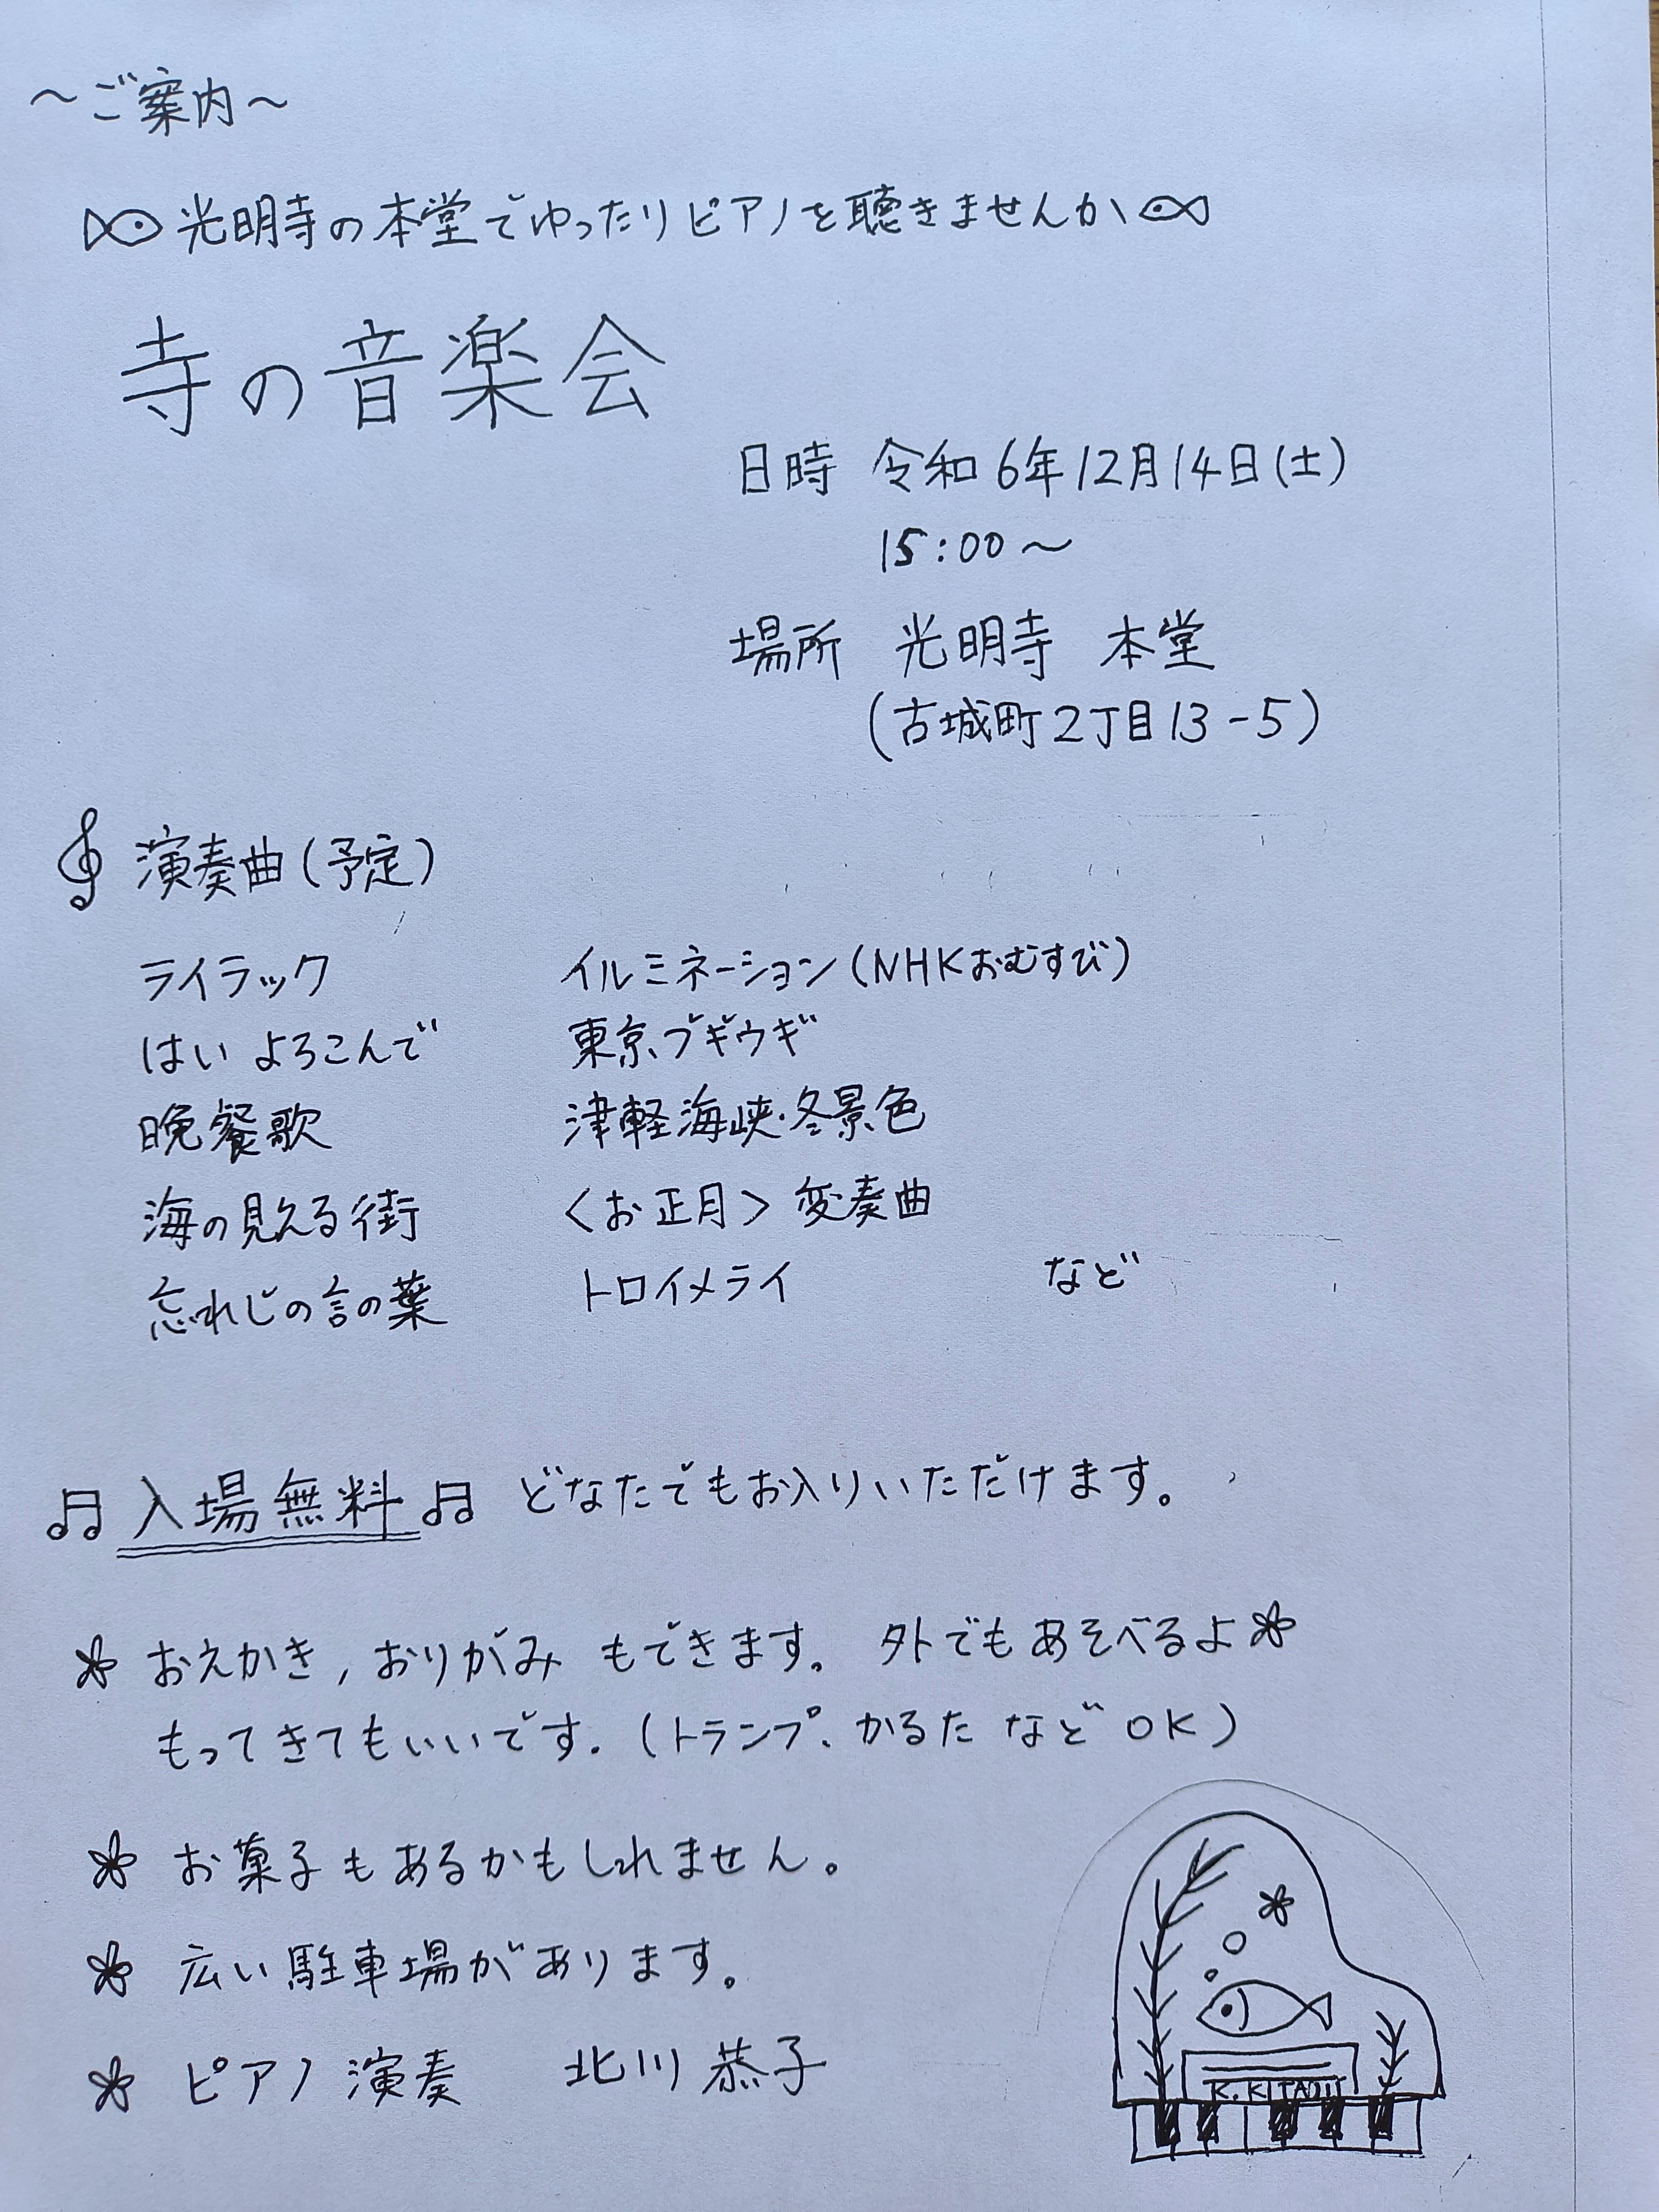 ～ご案内～
光明寺の本堂でゆったりピアノを聴きませんか
寺の音楽会
日時 令和6年12月14日(土)
15:00～
場所 光明寺 本堂
(古城町2丁目13-5)
演奏曲(予定)
ライラック
はい よろこんで
晩餐歌
海の見える街
忘れじの言の葉
イルミネーション(NHKおむすび)
東京ブギウギ
津軽海峡・冬景色
〈お正月〉変奏曲
トロイメライ など
♫ 入場無料 ♫ どなたでもお入りいただけます。
おえかき,おりがみ もできます。外でもあそべるよ
もってきてもいいです.(トランプ、かるた などOK)
お菓子もあるかもしれません。
広い駐車場があります。
ピアノ演奏 北川 恭子